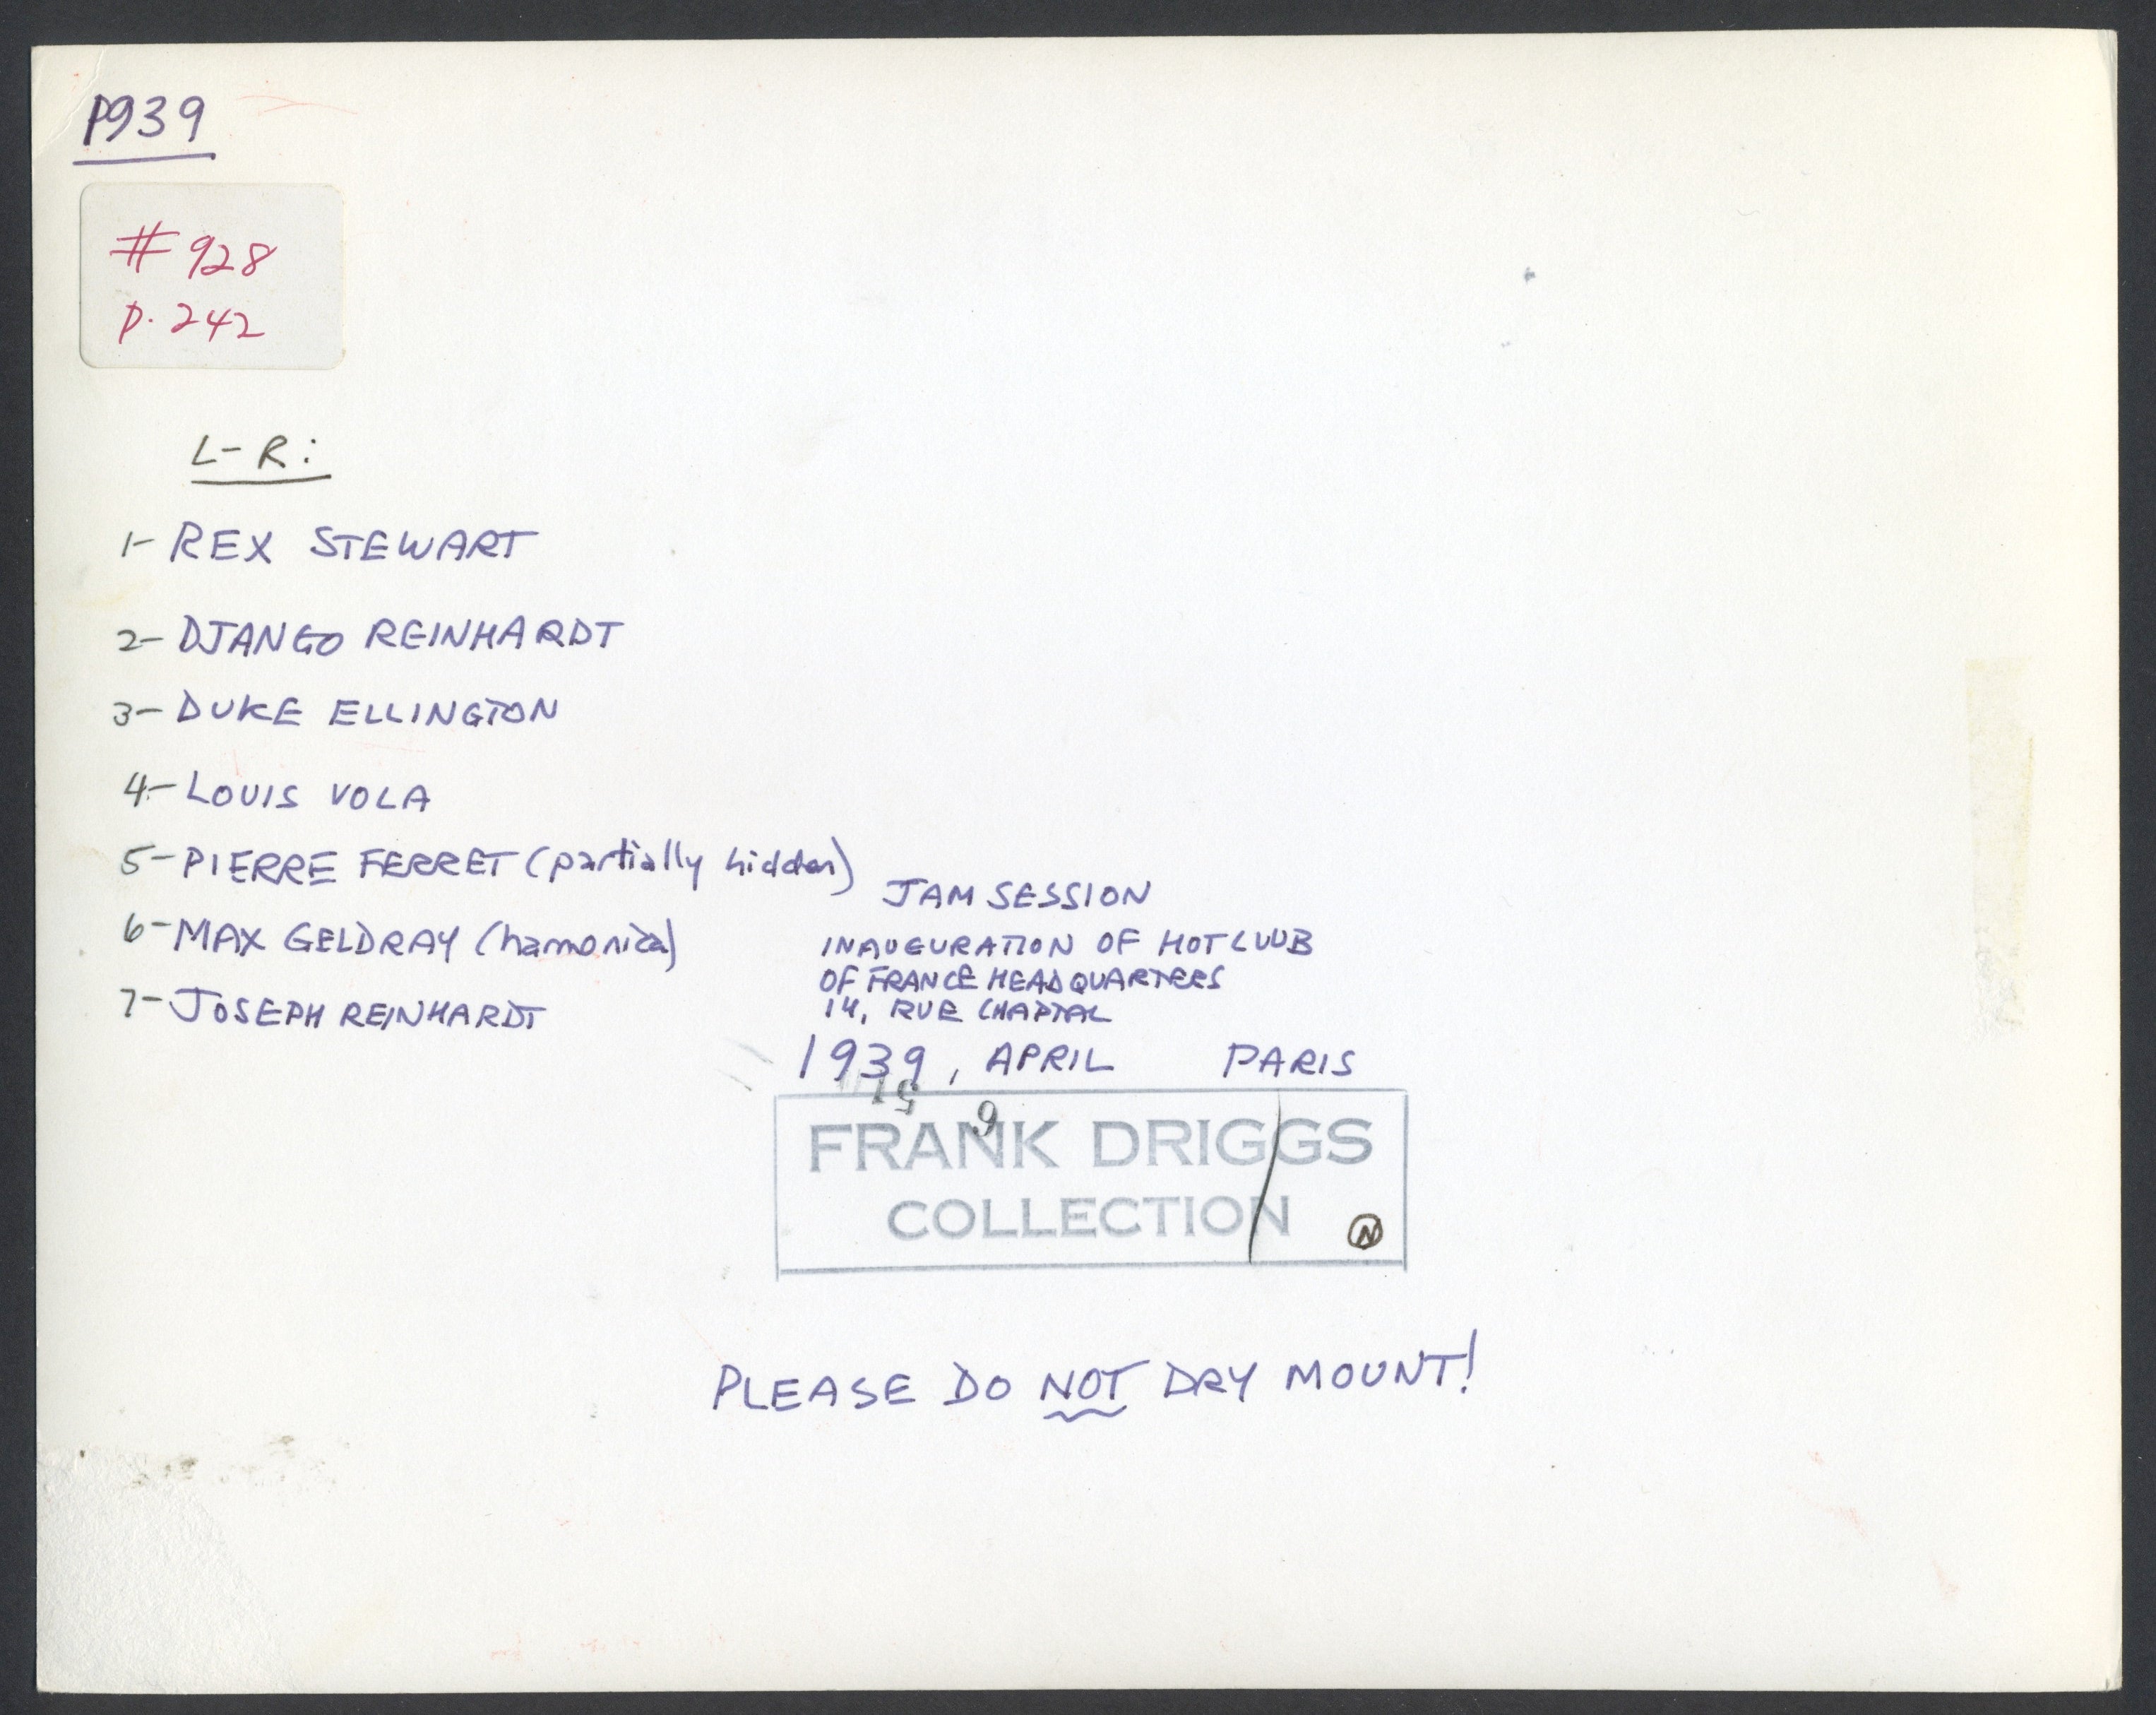 P939
# 928
p. 242
L-R:
1- REX STEWART
2- DJANGO REINHARDT
3- DUKE ELLINGTON
4- LOUIS VOLA
5- PIERRE FERRET (partially hidden)
6- MAX GELDRAY (harmonica)
7- JOSEPH REINHARDT
JAM SESSION
INAUGURATION OF HOT CLUB
OF FRANCE HEADQUARTERS
14, RUE CHAPTAL
1939, APRIL PARIS
51
6
FRANK DRIGGS
COLLECTION
N
PLEASE DO NOT DRY MOUNT!